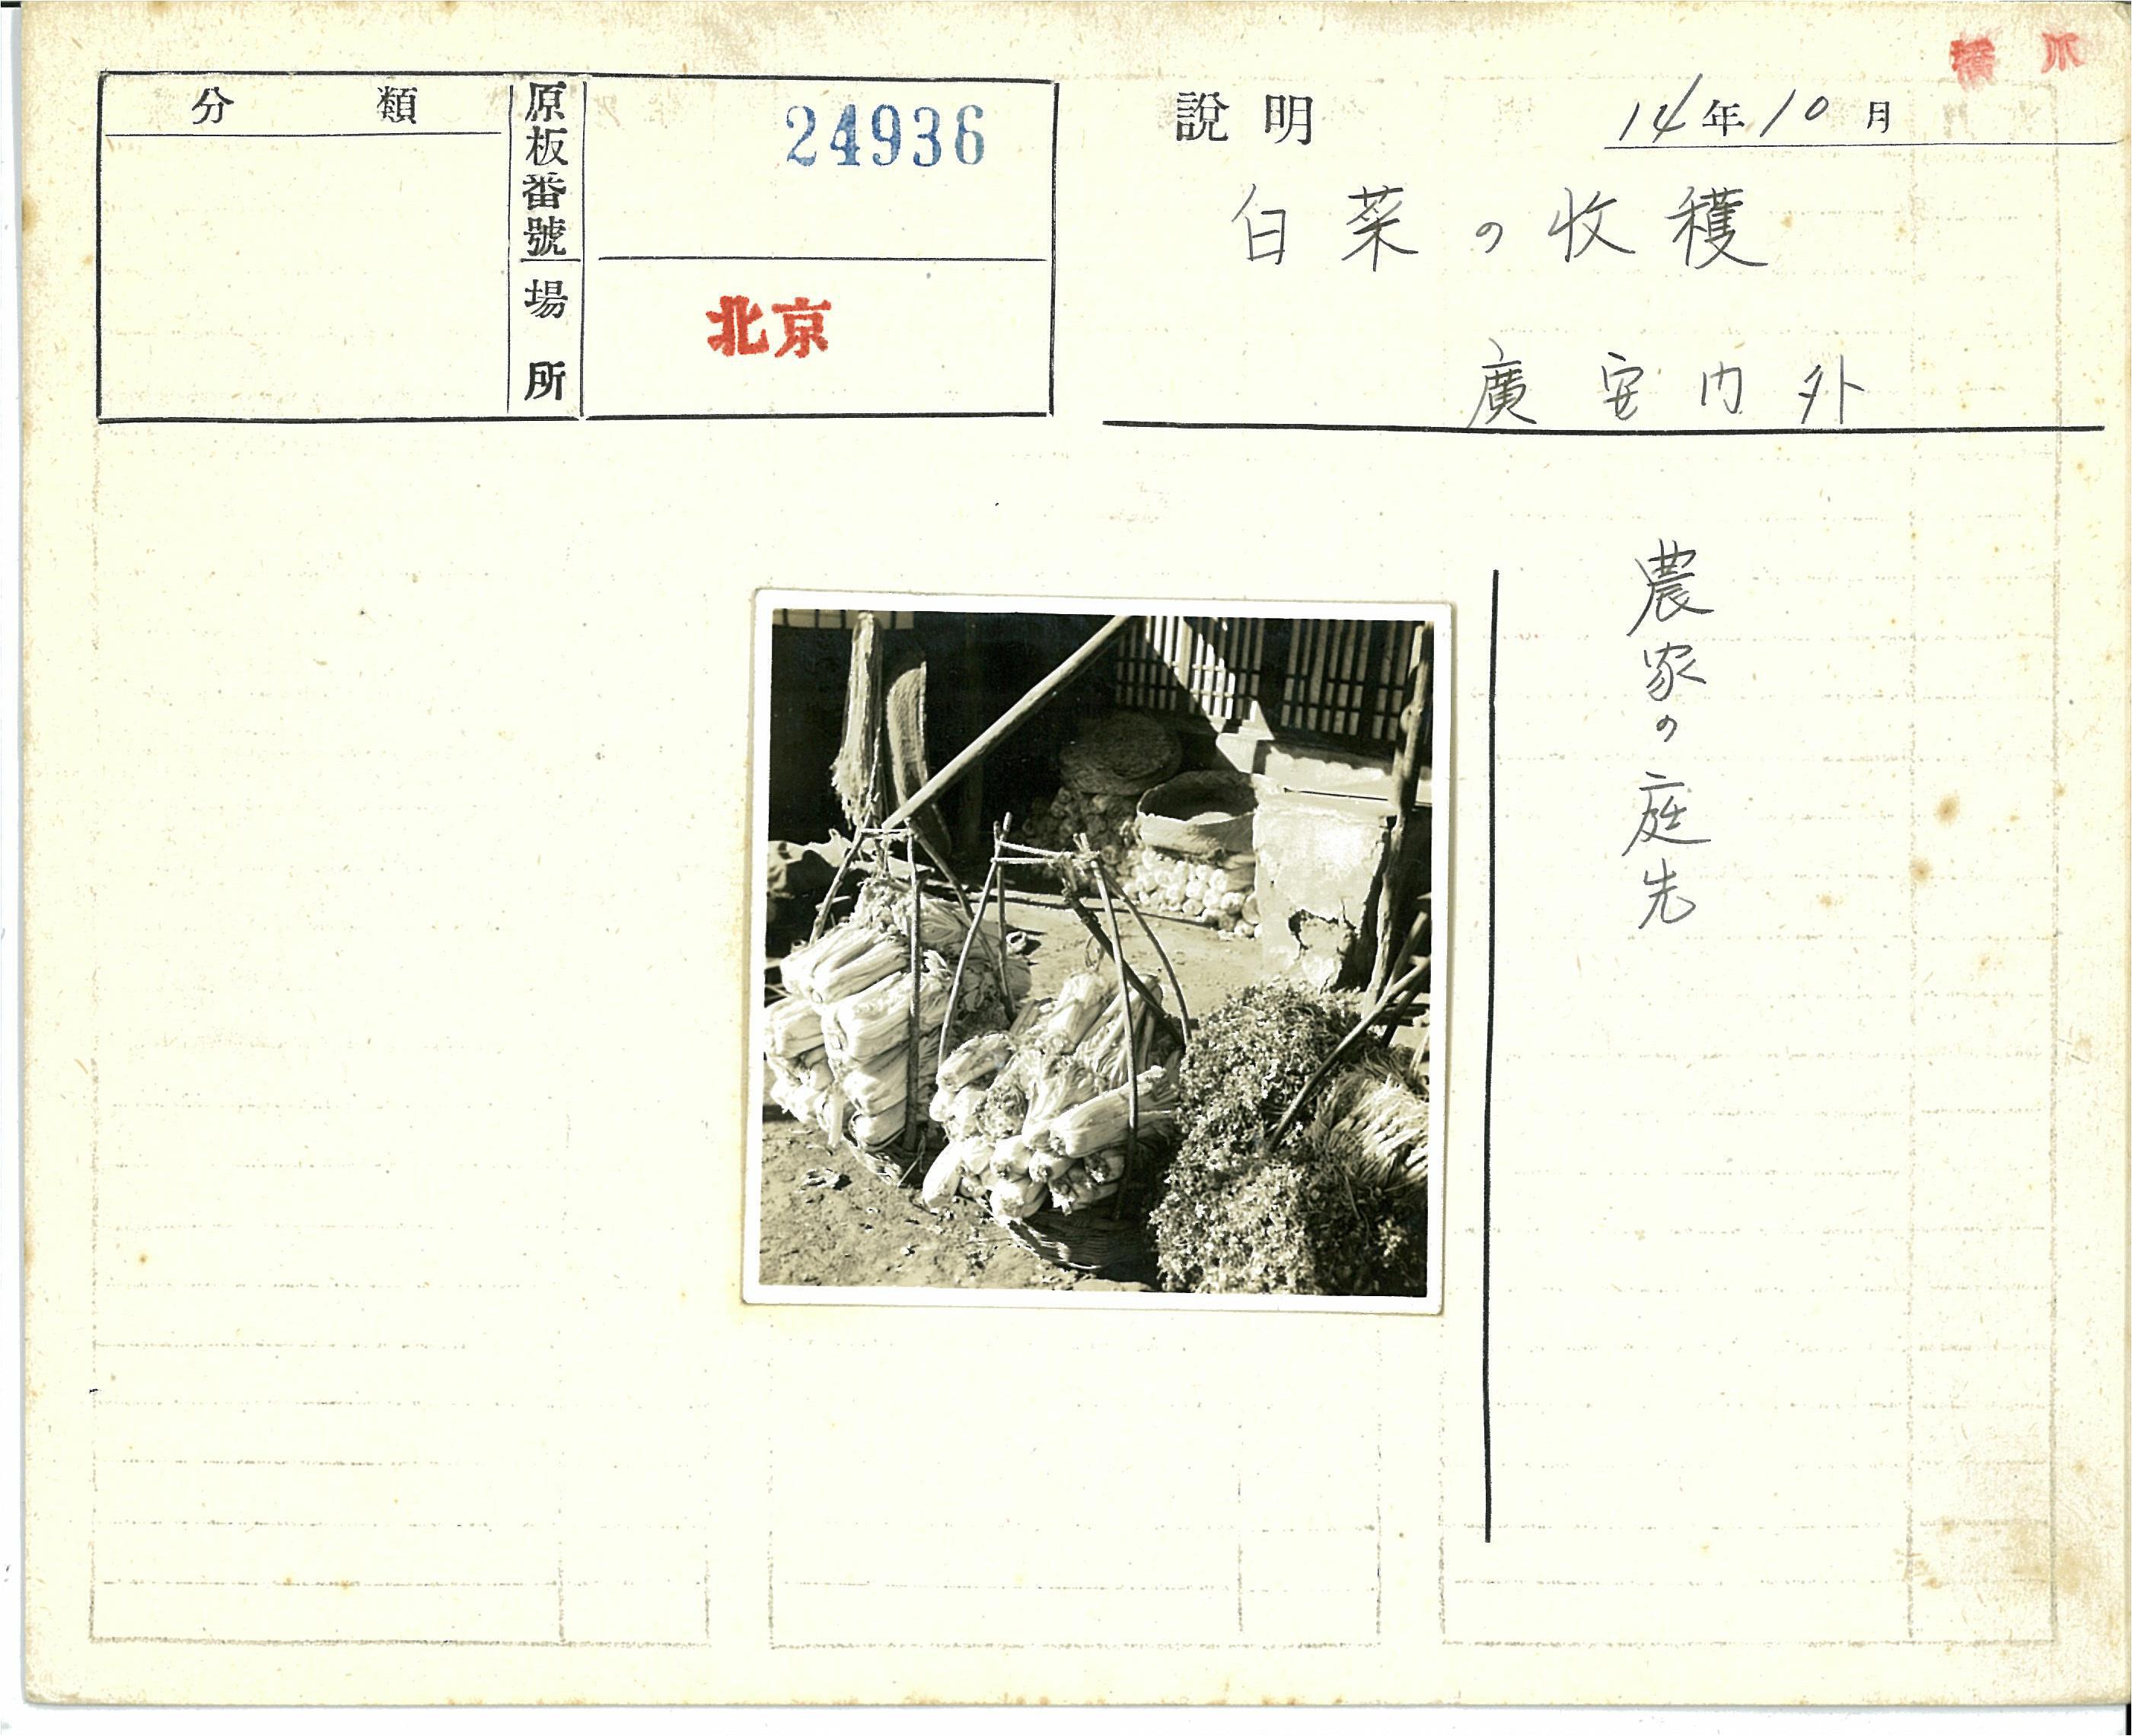 分類
原板番號
24936
場所
北京
説明
14年10月
白菜の收穫
廣安内外
農家の庭先